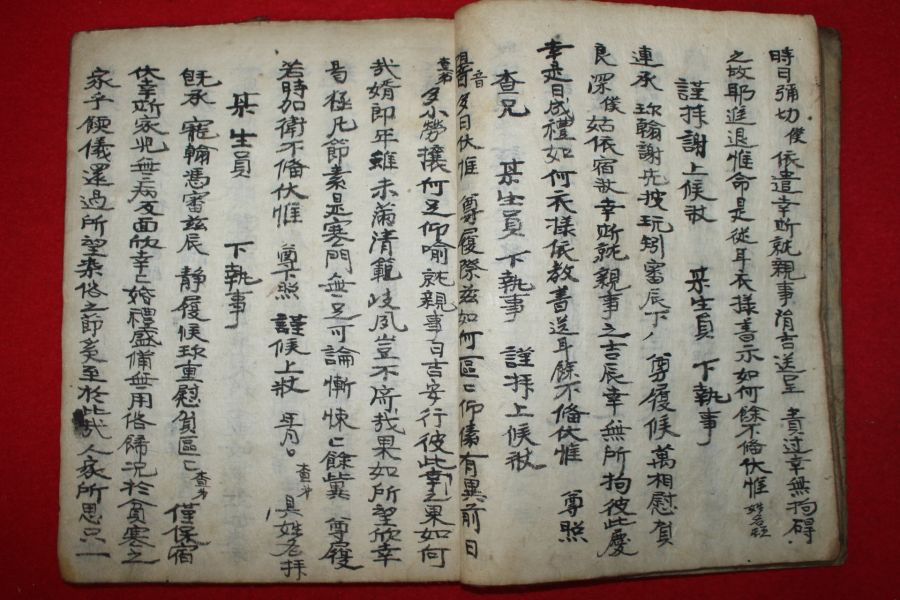 時日彌切僕依遣幸斯就親事涓吉送呈 貴过幸無拘碍
之故耶進退惟命是從耳衣樣書示如何餘不備伏惟
謹拜謝上候狀 某生員 下執事
連承 珎翰謝先披玩矧審辰下 尊履候萬相慰賀
良深僕姑依宿狀幸斯就親事之吉辰幸無所拘彼此慶
幸 日成禮如何衣樣依教書送耳餘不備伏惟 尊照
查兄 某生員 下執事 謹拜上候狀
音 多日伏惟 尊履際茲如何區區仰傃有異前日
查弟 多小勞攘何足仰喩就親事日吉安行彼此幸 果如何
我婿郞年雖未滿淸範岐 豈不 哉果如所望欣幸
曷極凡節素是寒門無足可論慚悚悚餘 尊履
若時加衛不備伏惟 尊照 謹候上狀 年月日 查弟 具姓名拜
某生員 下執事
旣承 寵翰憑審玆辰 靜履候珎重慰賀區區 查弟 僅保宿
伏幸斯家兒無病及面欣幸幸婚禮盛備無用俗歸況於貧寒之
家乎 儀還過所望 俗之節 至於此哉人家所思只一